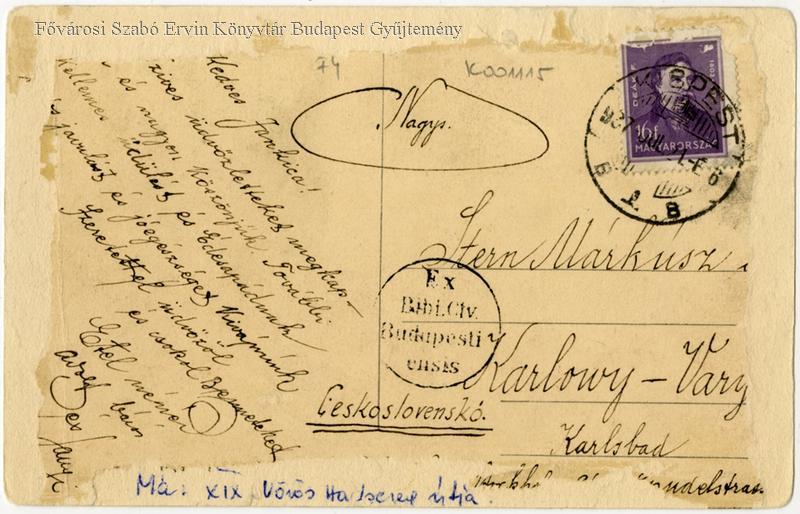 Fővárosi Szabó Ervin Könyvtár Budapest Gyűjtemény
74
K001115
Kedves Jankica!
szives üdvözletteket megkap-
és nagyon köszönjük További
Kellemes üdülést és Édesapádnak
is javulást és jóegészséget Kivánunk
Szeretettel üdvözöl
és csokol Benneteket
Etel néni
Nagys.
DEÁK F.
16f
MAGYARORSZÁG
BUDAPEST
Stern Márkúsz
Ex
Bibl. Civ.
Budapesti
ensis
Karlowy-Vary
Československó.
Karlsbad
Má: XIX. Vörös Hadsereg útja.